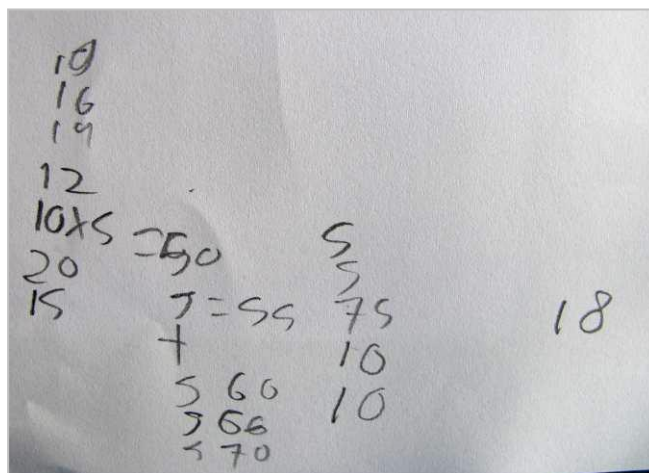 10
16
19
12
10x5 = 50
20
15
5 = 55
+
5 60
5 66
5 70
5
5
75
10
10
18